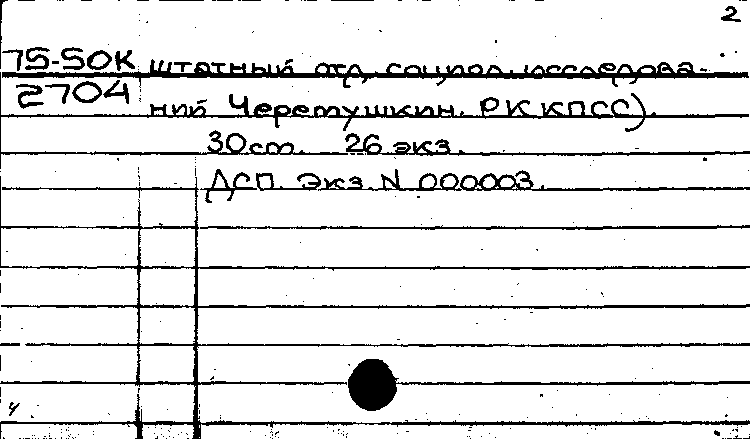 2
75-50К штатный отд. социол. исследова-
2704 ний Черемушкин. РК КПСС).
30 ст. 26 экз.
ДСП. Экз. N 000003.
4